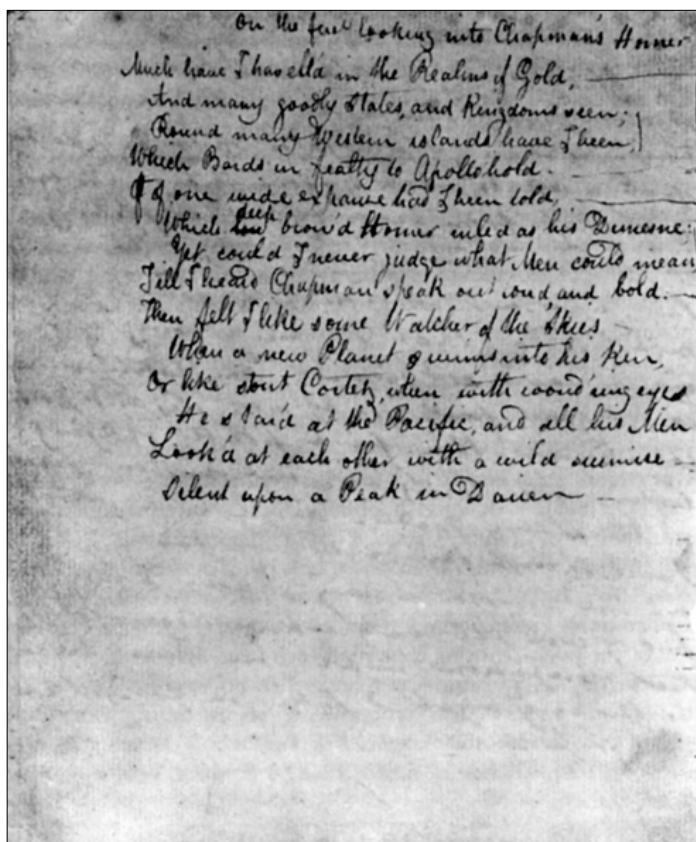 On the first looking into Chapman's Homer
Much have I travell'd in the Realms of Gold,
And many goodly States, and Kingdoms seen;
Round many Western islands have I been,
Which Bards in fealty to Apollo hold.
Of one wide expanse had I been told,
Which low deep brow'd Homer ruled as his Demesne:
Yet could I never judge what Men could mean
Till I heard Chapman speak out loud and bold.
Then felt I like some Watcher of the Skies
When a new Planet swims into his Ken,
Or like stout Cortez, when with wond'ring eyes
He star'd at the Pacific, and all his Men
Look'd at each other with a wild surmise
Silent upon a Peak in Darien